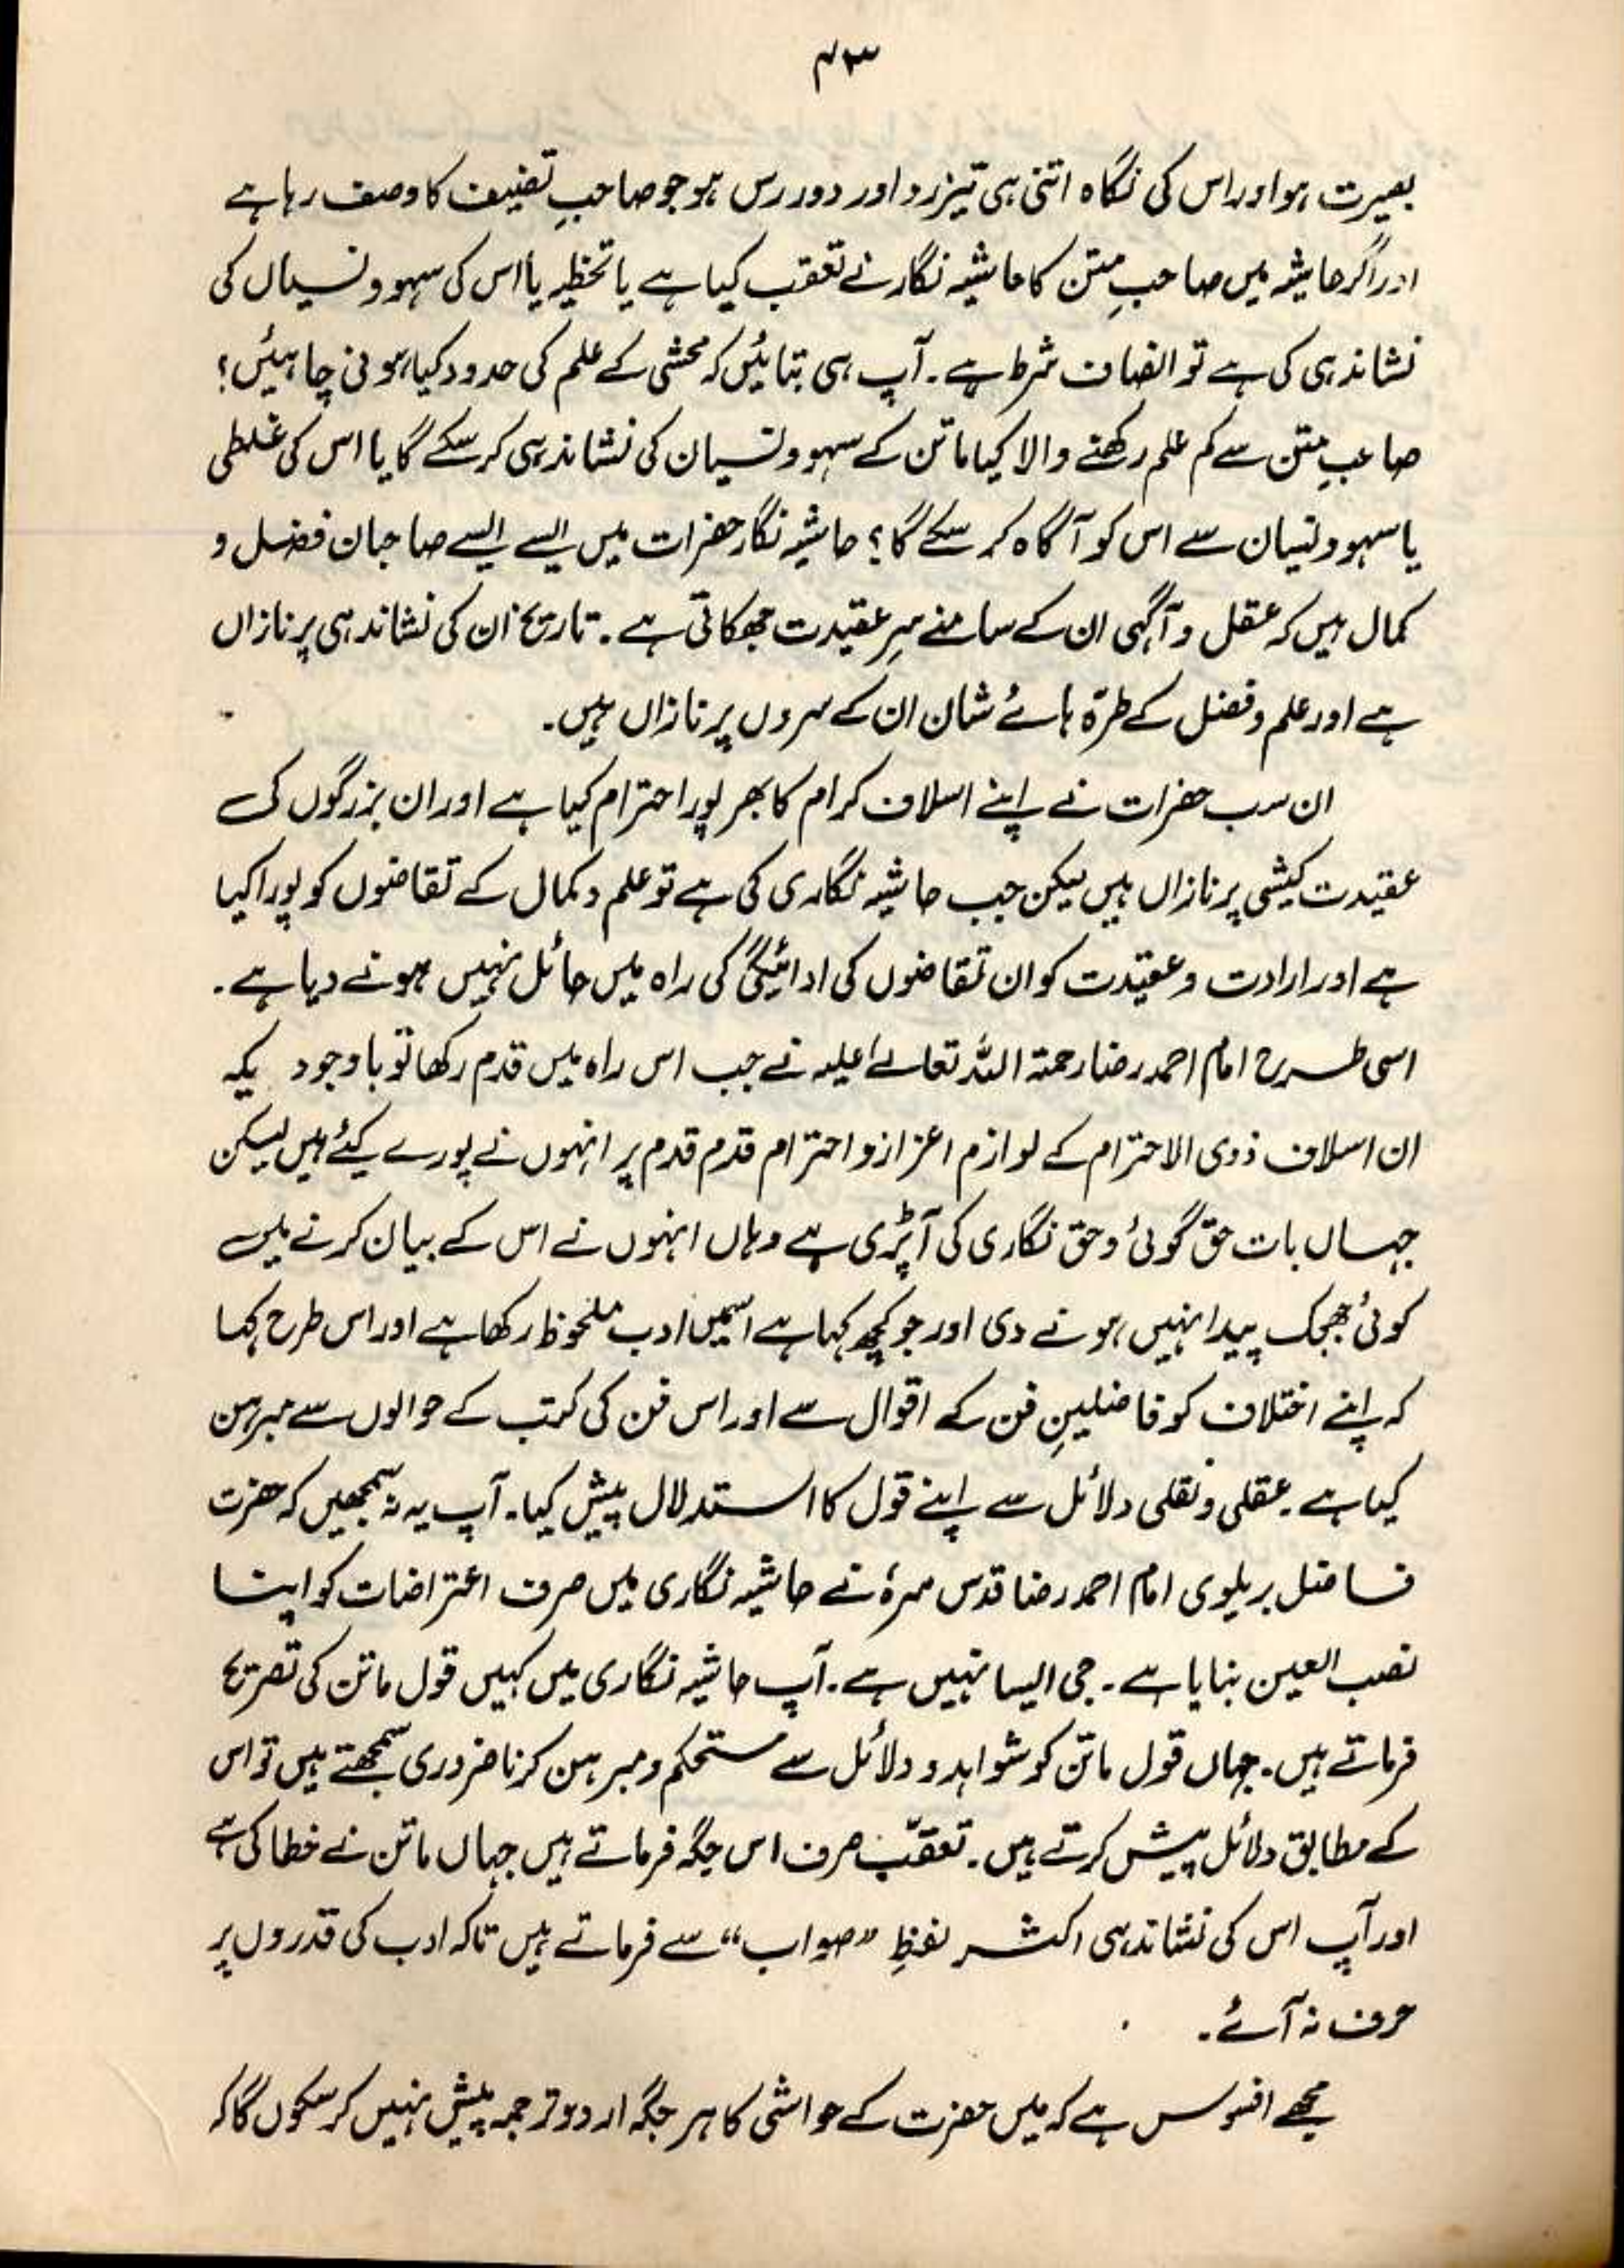 ۴۳
بصیرت ہو اور اس کی نگاہ اتنی ہی تیزرو اور دور رس ہو جو صاحبِ تصنیف کا وصف رہا ہے
اور اگر حاشیہ میں صاحبِ متن کا حاشیہ نگار نے تعقب کیا ہے یا تخطیہ یا اس کی سہو و نسیاں کی
نشاندہی کی ہے تو انصاف شرط ہے۔ آپ ہی بتائیں کہ محشی کے علم کی حدود کیا ہونی چاہئیں؟
صاحبِ متن سے کم علم رکھنے والا کیا ماتن کے سہو و نسیان کی نشاندہی کر سکے گا یا اس کی غلطی
یا سہو و نسیان سے اس کو آگاہ کر سکے گا؟ حاشیہ نگار حضرات میں ایسے ایسے صاحبان فضل و
کمال ہیں کہ عقل و آگہی ان کے سامنے سرِ عقیدت جھکاتی ہے۔ تاریخ ان کی نشاندہی پر نازاں
ہے اور علم و فضل کے طرّہ ہائے شان ان کے سروں پر نازاں ہیں۔
ان سب حضرات نے اپنے اسلاف کرام کا بھرپور احترام کیا ہے اور ان بزرگوں کی
عقیدت کیشی پر نازاں ہیں لیکن جب حاشیہ نگاری کی ہے تو علم و کمال کے تقاضوں کو پورا کیا
ہے اور ارادت و عقیدت کو ان تقاضوں کی ادائیگی کی راہ میں حائل نہیں ہونے دیا ہے۔
اسی طرح امام احمد رضا رحمۃ اللہ تعالےٰ علیہ نے جب اس راہ میں قدم رکھا تو باوجود یکہ
ان اسلاف ذوی الاحترام کے لوازم اعزاز و احترام قدم قدم پر انہوں نے پورے کئے ہیں لیکن
جہاں بات حق گوئی و حق نگاری کی آپڑی ہے وہاں انہوں نے اس کے بیان کرنے میں
کوئی جھجک پیدا نہیں ہونے دی اور جو کچھ کہا ہے اسمیں ادب ملحوظ رکھا ہے اور اس طرح کہا
کہ اپنے اختلاف کو فاضلینِ فن کے اقوال سے اور اس فن کی کتب کے حوالوں سے مبرہن
کیا ہے۔ عقلی و نقلی دلائل سے اپنے قول کا استدلال پیش کیا۔ آپ یہ نہ سمجھیں کہ حضرت
فاضل بریلوی امام احمد رضا قدس سرہٗ نے حاشیہ نگاری میں صرف اعتراضات کو اپنا
نصب العین بنایا ہے۔ جی ایسا نہیں ہے۔ آپ حاشیہ نگاری میں کہیں قول ماتن کی تصریح
فرماتے ہیں۔ جہاں قول ماتن کو شواہد و دلائل سے مستحکم و مبرہن کرنا ضروری سمجھتے ہیں تو اس
کے مطابق دلائل پیش کرتے ہیں۔ تعقّب صرف اس جگہ فرماتے ہیں جہاں ماتن نے خطا کی ہے
اور آپ اس کی نشاندہی اکثر لفظِ ”صواب“ سے فرماتے ہیں تاکہ ادب کی قدروں پر
حرف نہ آئے۔
مجھے افسوس ہے کہ میں حضرت کے حواشی کا ہر جگہ اردو ترجمہ پیش نہیں کر سکوں گا کہ